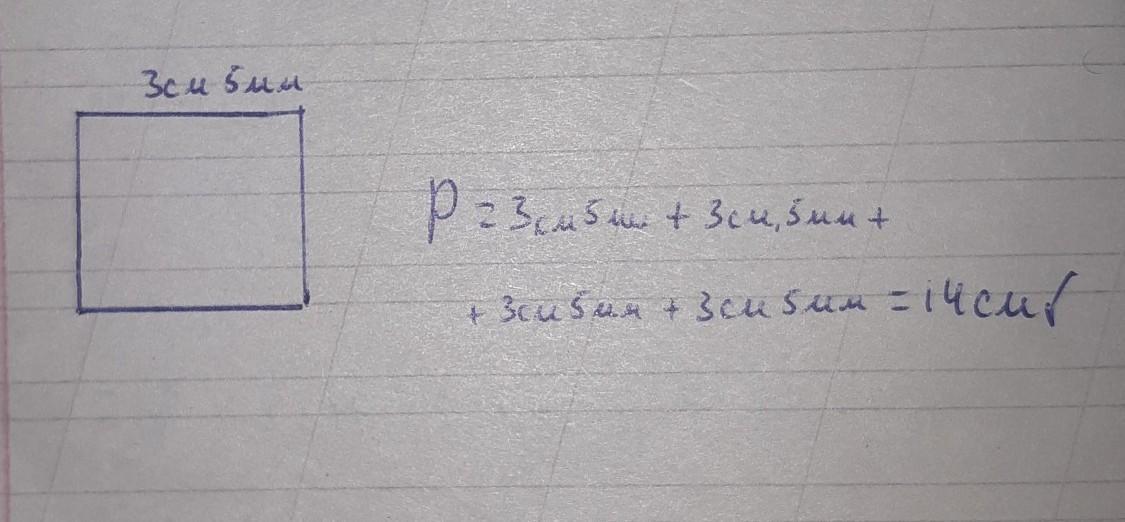 3см 5мм
P = 3см 5мм + 3см 5мм +
+ 3см 5мм + 3см 5мм = 14см✓